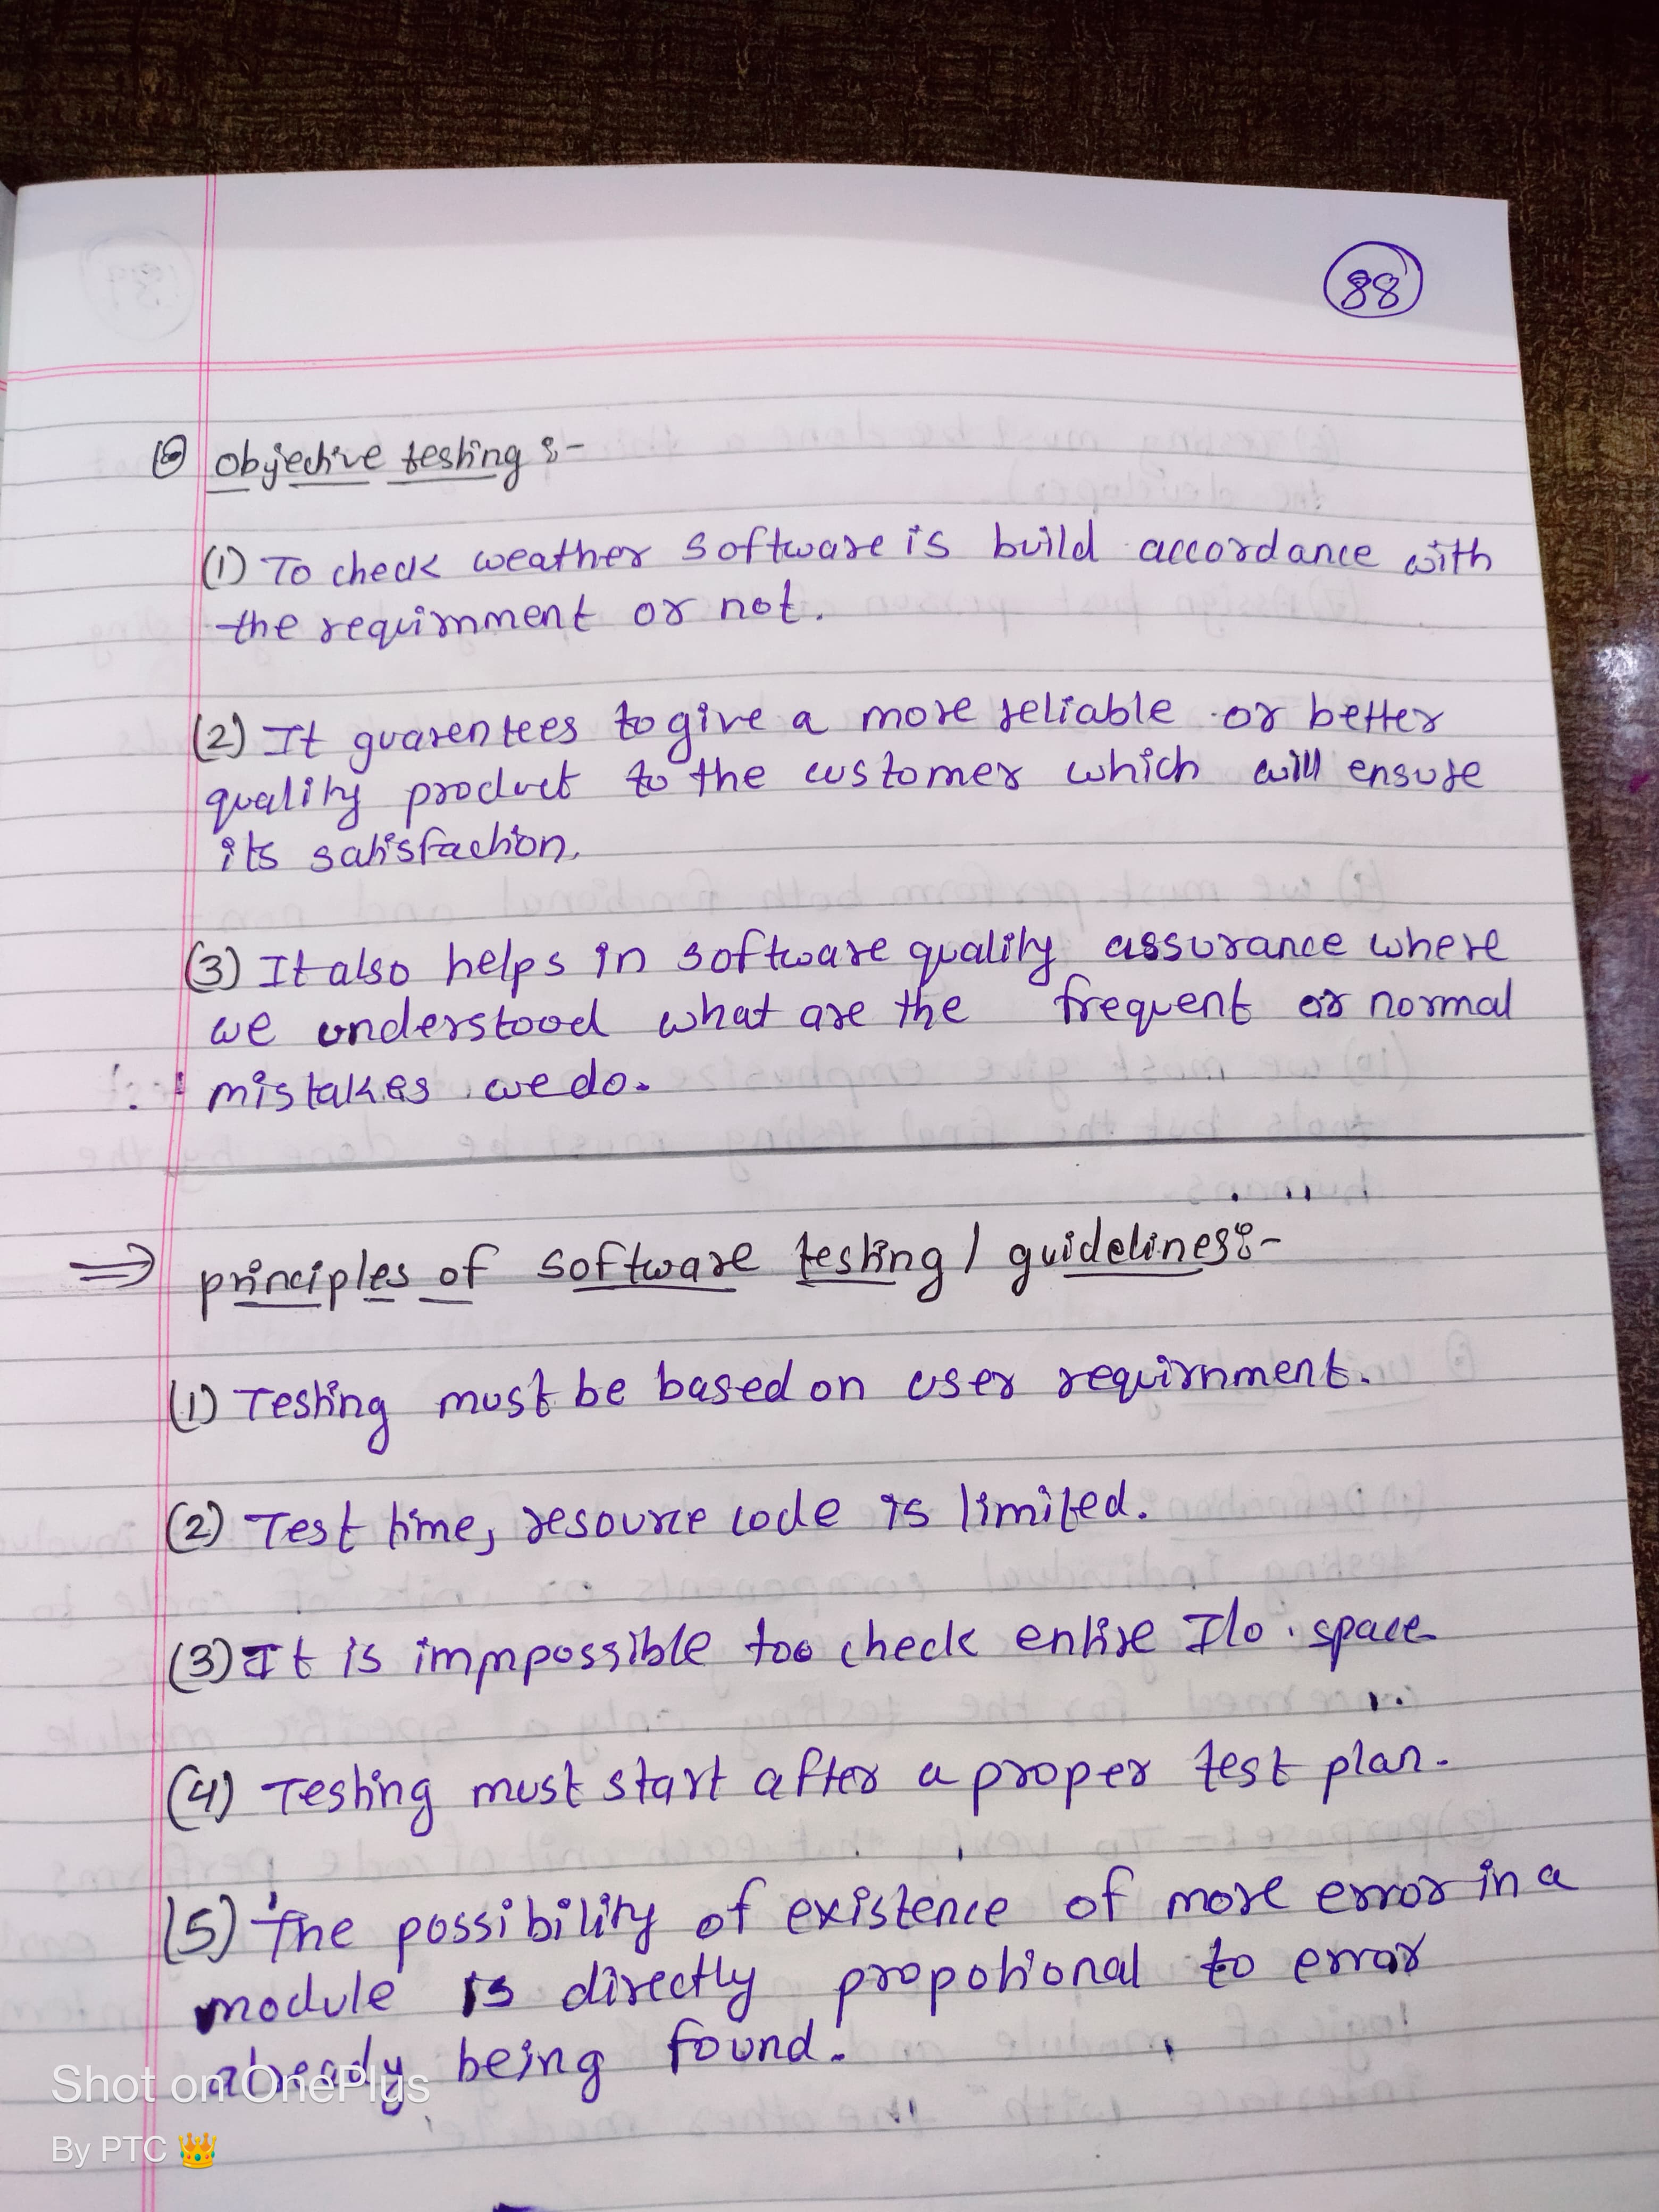 88
objective testing :-
(1) To check weather software is build accordance with
the requirnment or not.
(2) It guarentees to give a more reliable or better
quality product to the customer which will ensure
its satisfaction.
(3) It also helps in software quality assurance where
we understood what are the frequent or normal
mistakes we do.
⇒ principles of software testing / guidelines:-
(1) Testing must be based on user requirnment.
(2) Test time, resource code is limited.
(3) It is immpossible too check entire I/o space
(4) Testing must start after a proper test plan.
(5) The possibility of existence of more error in a
module is directly propotional to error
already being found.
Shot on OnePlus
By PTC 👑